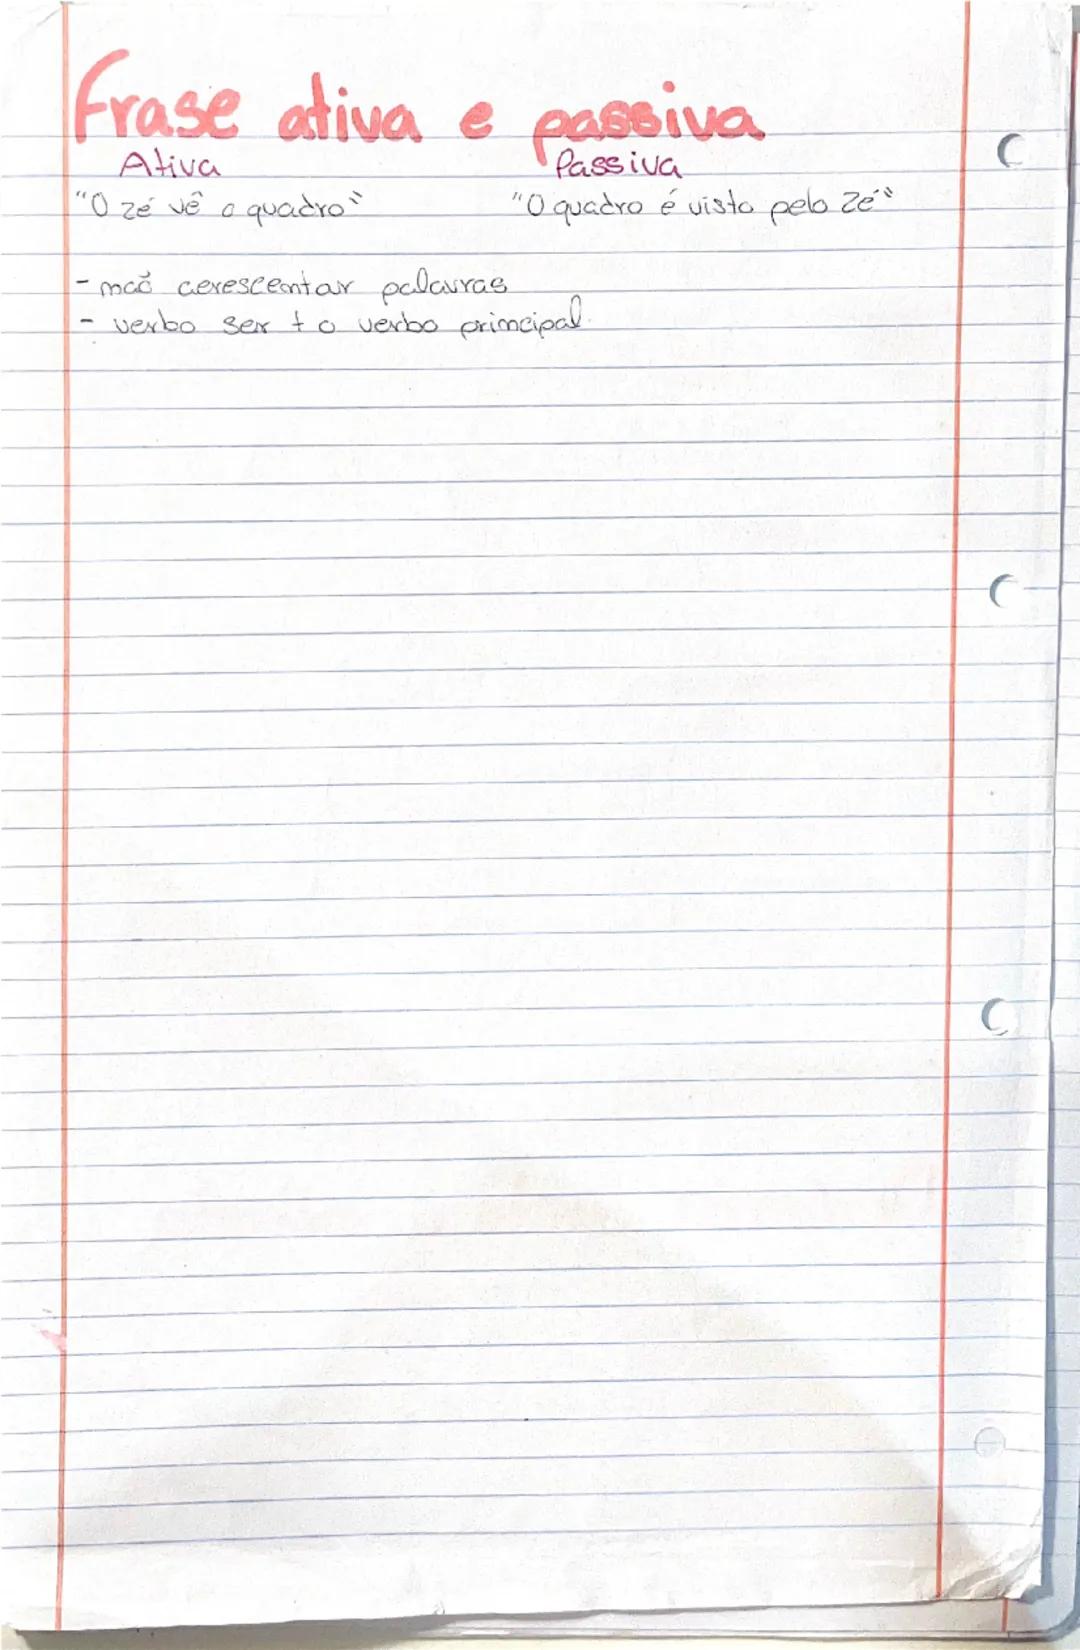 Frase ativa e passiva
Ativa Passiva
"O zé vê o quadro" "O quadro é visto pelo Zé"
- não acrescentar palavras
- verbo ser + o verbo principal.